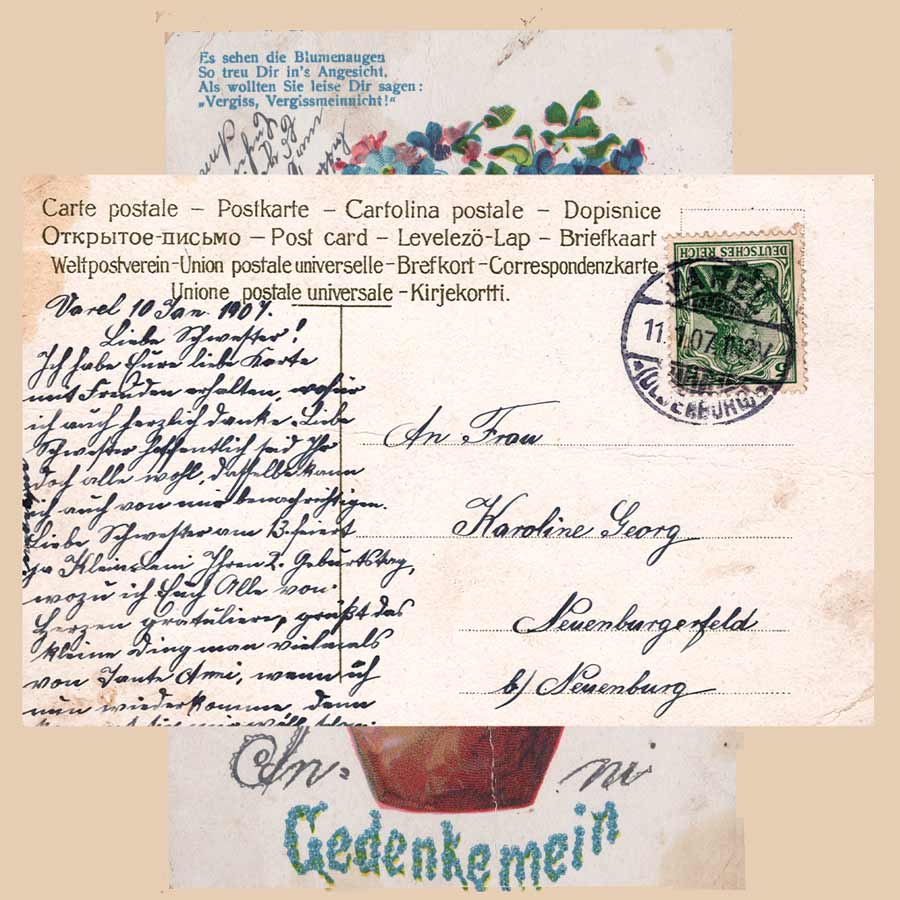 Es sehen die Blumenaugen
So treu Dir in's Angesicht,
Als wollten Sie leise Dir sagen:
„Vergiss, Vergissmeinnicht!“
Carte postale – Postkarte – Cartolina postale – Dopisnice
Открытое-письмо – Post card – Levelezö-Lap – Briefkaart
Weltpostverein-Union postale universelle-Brefkort-Correspondenzkarte
Unione postale universale - Kirjekortti.
DEUTSCHES REICH
5
VAREL
11.1.07
(OLDENBURG)
Varel 10 Jan. 1907.
Liebe Schwester!
Ich habe Eure liebe Karte
mit Freuden erhalten, wofür
ich auch herzlich danke. Liebe
Schwester hoffentlich seid Ihr
doch alle wohl, dasselbe kann
ich auch von mir benachrichtigen.
Liebe Schwester am 13. feiert
ja Klein Leni Ihren 2. Geburtstag,
wozu ich Euch Alle von
Herzen gratuliere, grüßt das
kleine Ding man vielmals
von Tante Ami, wenn ich
nun wiederkomme, dann
An Frau
Karoline Georg
Neuenburgerfeld
b/ Neuenburg
An- ni
Gedenke mein